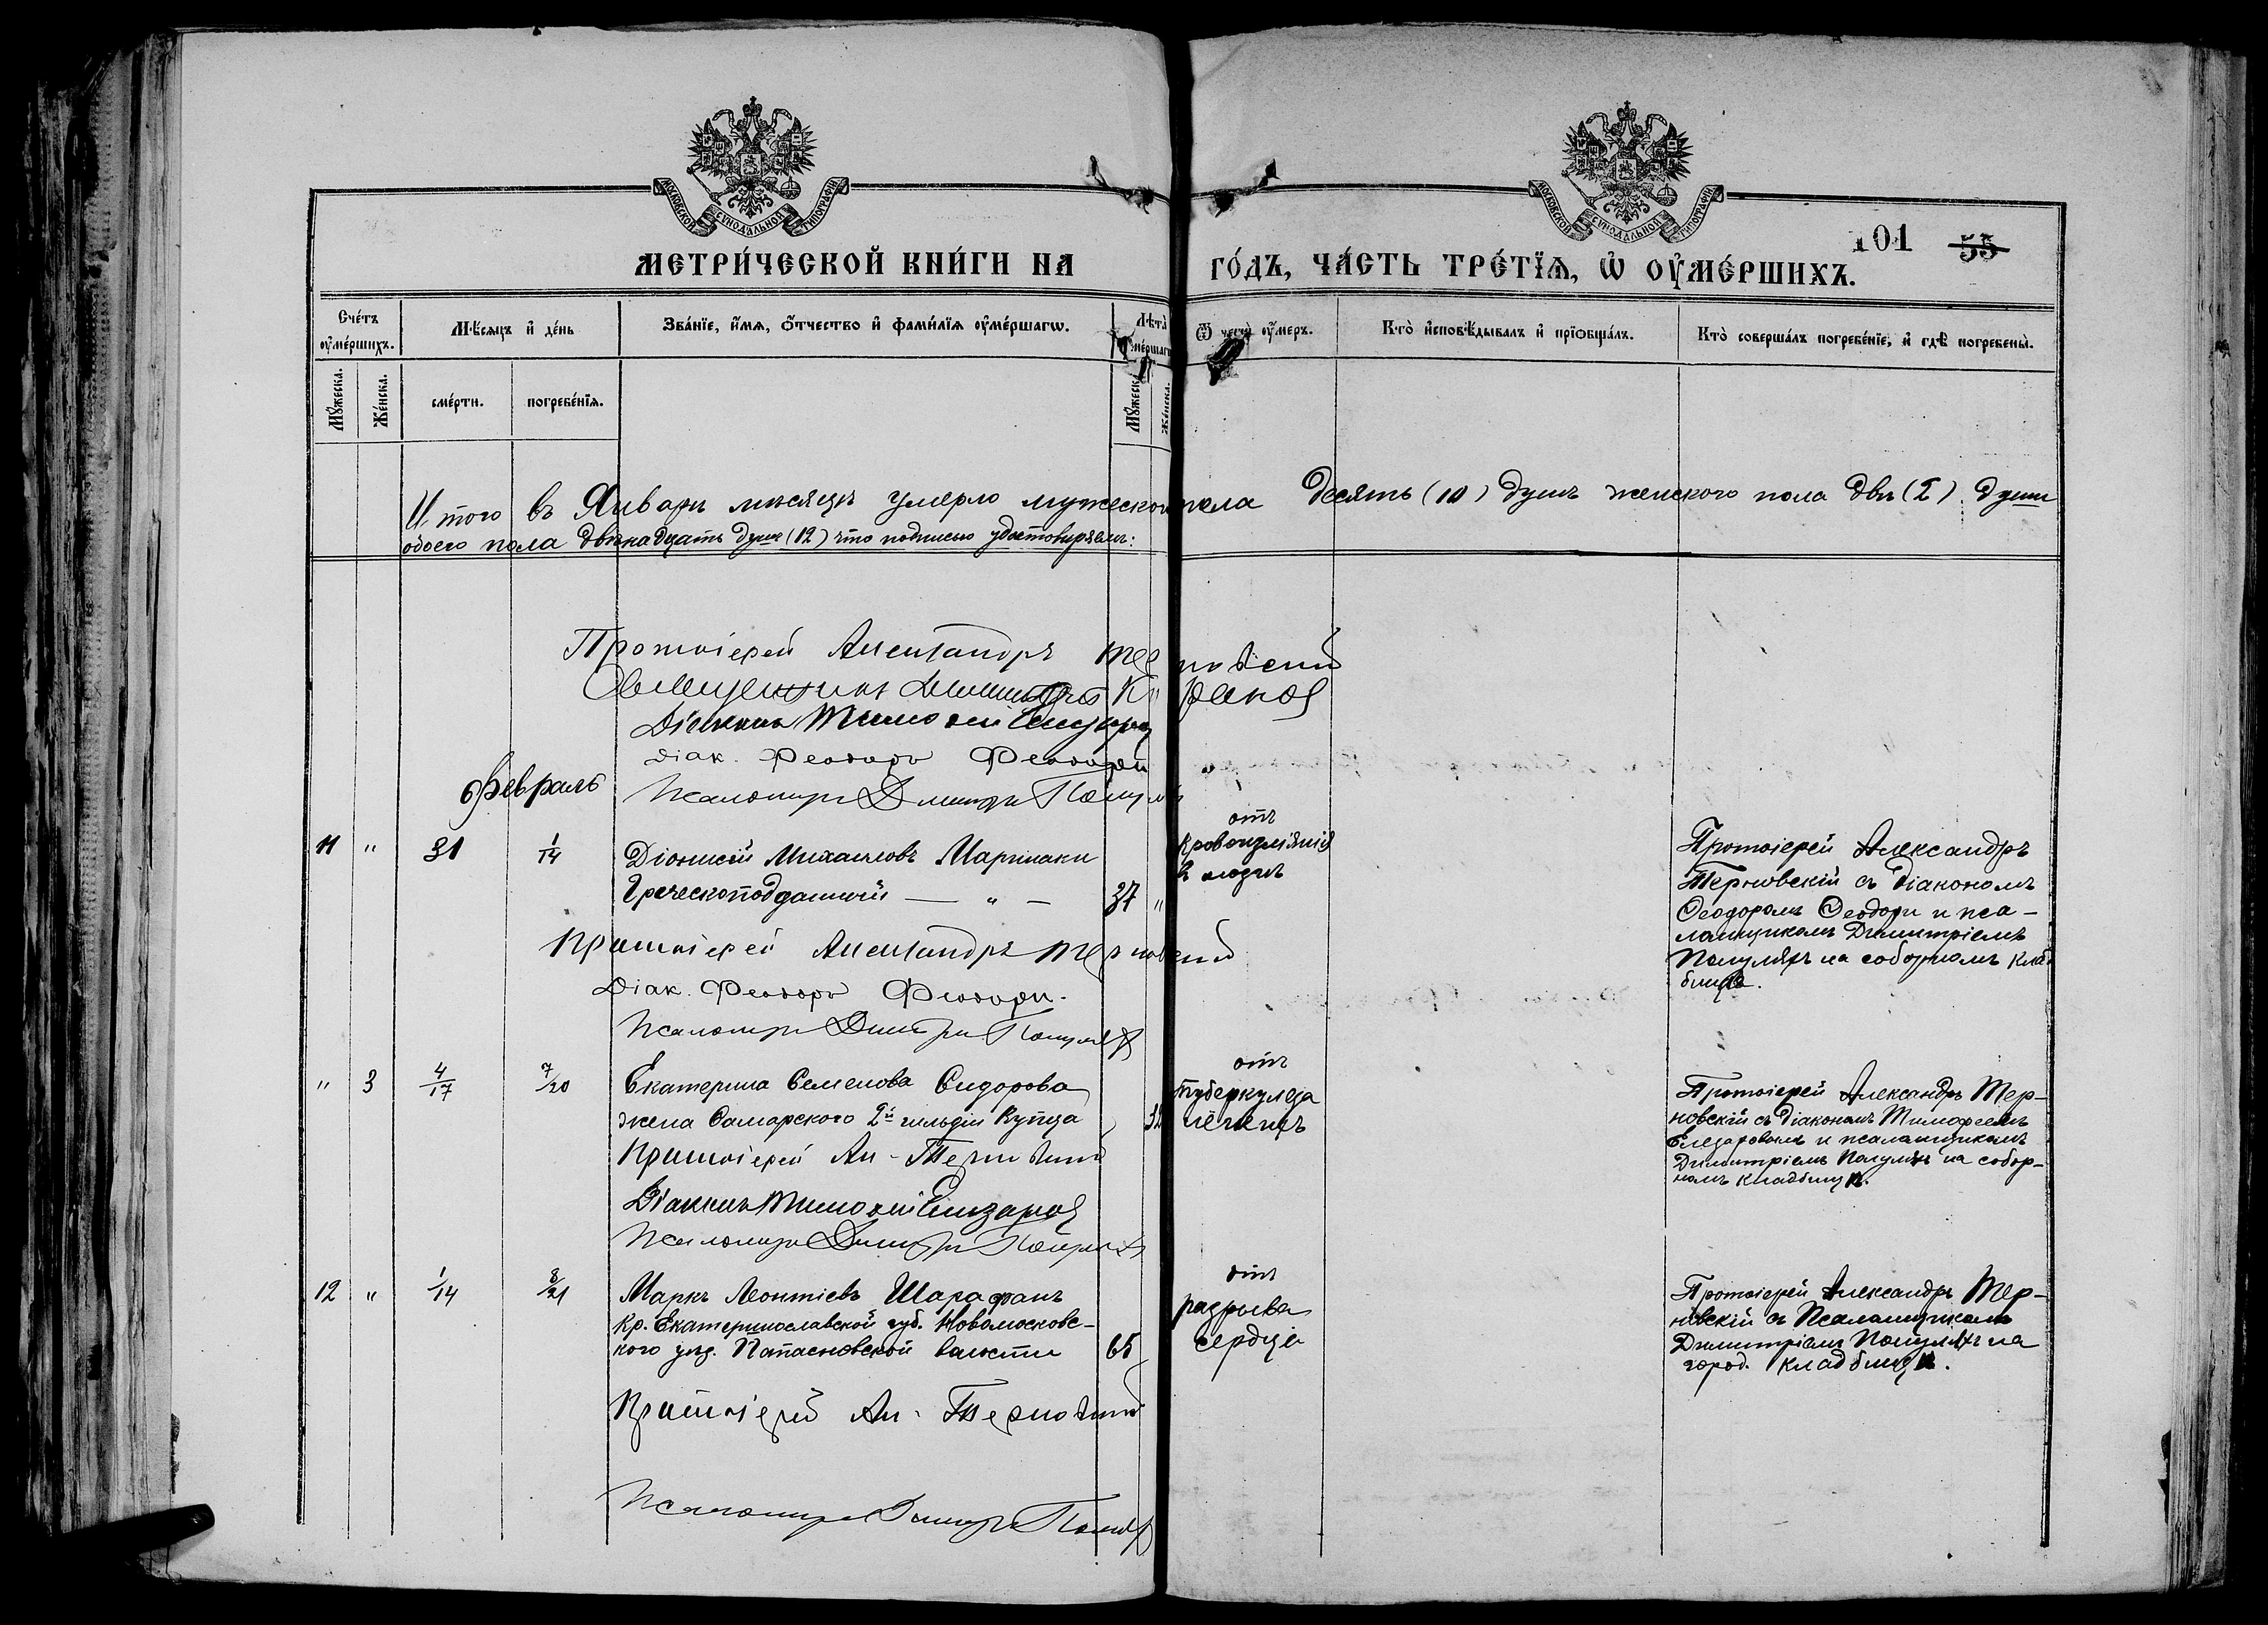 МОСКОВСКОЙ СУНОДАЛЬНОЙ ТИПОГРАФІИ
МОСКОВСКОЙ СУНОДАЛЬНОЙ ТИПОГРАФІИ
101 55
МЕТРИ́ЧЕСКОЙ КНИ́ГИ НА ГО́ДЪ, ЧА́СТЬ ТРЕ́ТЇѦ, Ѡ ОУМЕ́РШИХЪ.
Сче́тъ оуме́ршихъ.
Мѣ́сѧцъ и де́нь
Зва́нїе, и́мѧ, ѻ́тчество и фами́лїѧ оуме́ршагѡ.
Лѣта̀ оуме́ршагѡ
Ѿ чегѡ̀ оу́меръ.
Кто̀ исповѣ́дывалъ и прїѡбща́лъ.
Кто̀ соверша́лъ погребе́нїе, и гдѣ̀ погребены̀.
Мꙋ́жеска.
Же́нска.
сме́рти.
погребе́нїѧ.
Мꙋ́жеска.
Же́нска.
Итого въ Январѣ мѣсяцѣ умерло мужеского пола десять (10) душъ женского пола двѣ (2) души
обоего пола двѣнадцать душъ (12) что подписью удостовѣряемъ:
Протоіерей Александръ Терновский
Священникъ Димитрій
Діаконъ Тимофей Елеазаров
Діак. Феодоръ Феодори
Псаломщ Дмитрій Попул
Февраль
11 " 31 1/14
Діонисій Михаиловъ Маринаки
Греческоподданный — " — 37 "
отъ
кровоизліянія
в
Протоіерей Александръ
Терновскій съ діакономъ
Ѳеодоромъ Ѳеодори и пса-
ломщикомъ Димитріемъ
на соборномъ клад
бищѣ.
Протоіерей Александръ Терновский
Діак. Феодоръ Феодори.
Псаломщ Дмитрій
" 3 4/17 7/20
Екатерина Семенова Сидорова
жена Самарского 2й гильдіи купца 32
отъ
туберкулеза
легкихъ
Протоіерей Александръ Тер-
новскій съ діакономъ Тимофеемъ
Елеазаровымъ и псаломщикомъ
Димитріемъ на собор-
номъ кладбищѣ.
Протоіерей Ал. Терновский
Діаконъ Тимофей Елеазаров
Псаломщ Дмитрій
12 " 1/14 8/21
Маркъ Леонтіевъ Шарафанъ
кр. Екатеринославской губ. Новомосковс-
кого уѣзд. волости 65
отъ
разрыва
сердца
Протоіерей Александръ Тер-
новскій съ Псаломщикомъ
Димитріемъ на
город. кладбищѣ.
Протоіерей Ал. Терновский
Псаломщ Дмитрій